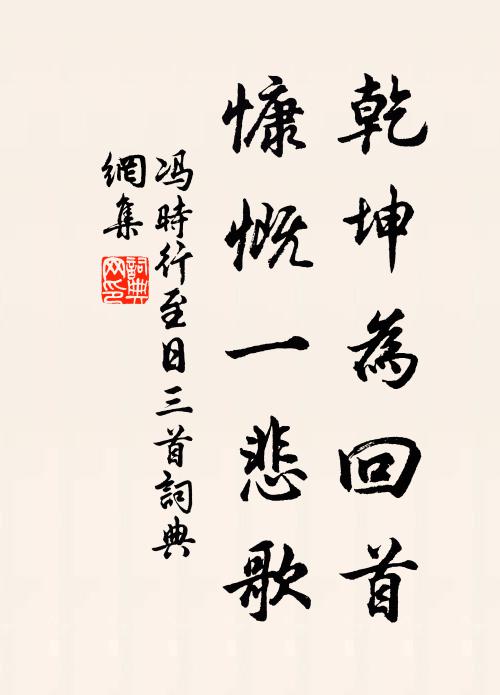 乾坤為回首
慷慨一悲歌
冯時行至日三首詞典
網集
詞典
网印